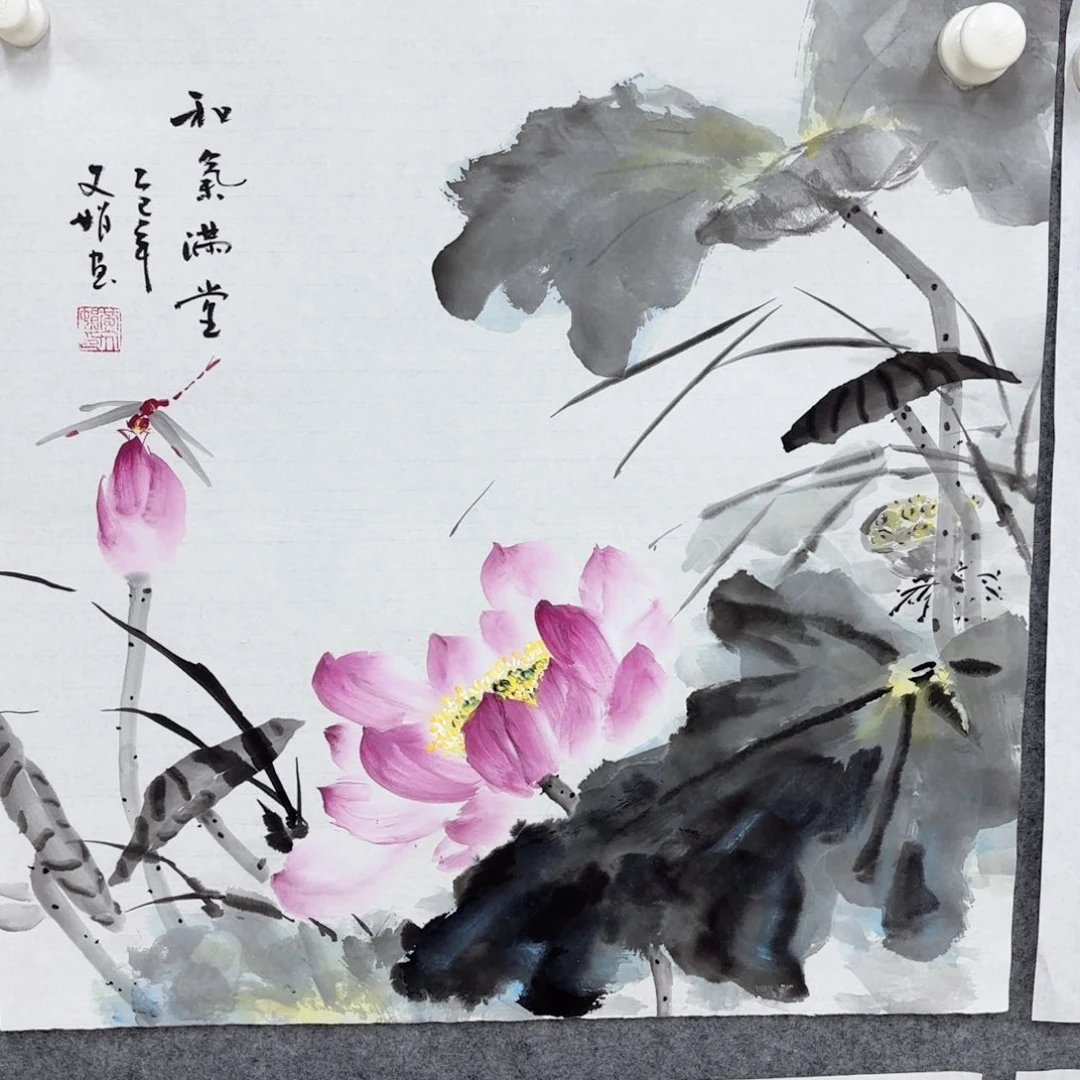 和氣滿堂
乙巳年
文娟画